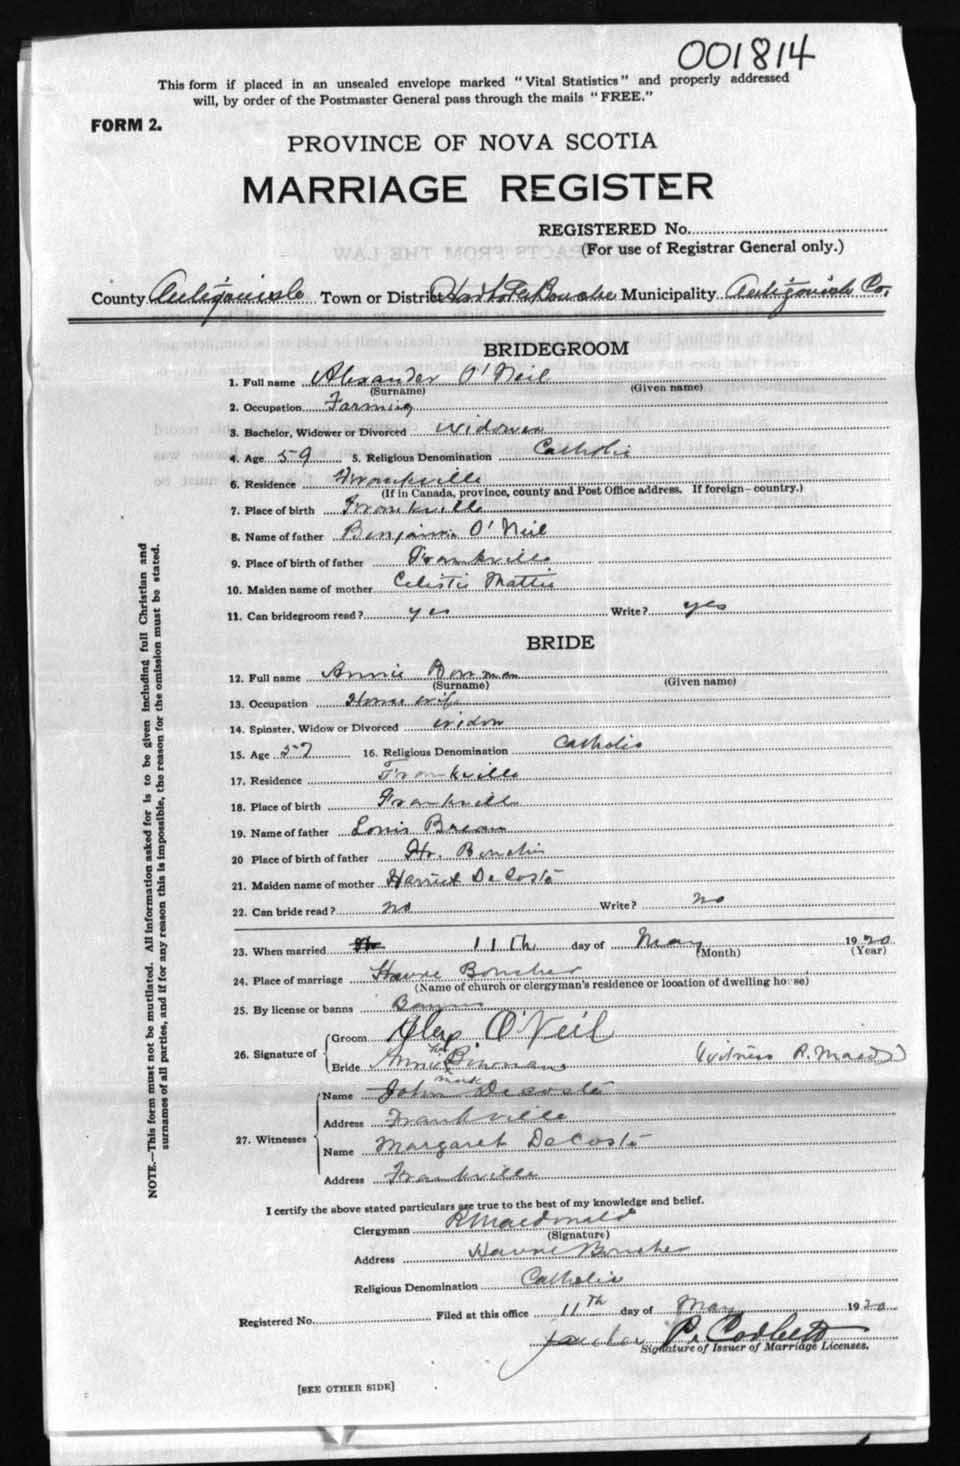 001814
This form if placed in an unsealed envelope marked "Vital Statistics" and properly addressed
will, by order of the Postmaster General pass through the mails "FREE."
FORM 2.
PROVINCE OF NOVA SCOTIA
MARRIAGE REGISTER
REGISTERED No.
(For use of Registrar General only.)
County Antigonish Town or District Municipality Antigonish Co.
BRIDEGROOM
1. Full name Alexander O'Neil
(Surname) (Given name)
2. Occupation Farming
3. Bachelor, Widower or Divorced widower
4. Age 59 5. Religious Denomination Catholic
6. Residence Frankville
(If in Canada, province, county and Post Office address. If foreign—country.)
7. Place of birth Frankville
8. Name of father Benjamin O'Neil
9. Place of birth of father Frankville
10. Maiden name of mother Celestie Mattie
11. Can bridegroom read? yes Write? yes
BRIDE
12. Full name Annie Bowman
(Surname) (Given name)
13. Occupation House wife
14. Spinster, Widow or Divorced widow
15. Age 57 16. Religious Denomination Catholic
17. Residence Frankville
18. Place of birth Frankville
19. Name of father Louis
20 Place of birth of father Hr. Bouchie
21. Maiden name of mother Harriet DeCoste
22. Can bride read? no Write? no
23. When married 11th day of May 1920
(Month) (Year)
24. Place of marriage Havre Boucher
(Name of church or clergyman's residence or location of dwelling house)
25. By license or banns Banns
26. Signature of Groom Alex. O'Neil
Bride Annie her Bowman (witness R. Macd)
mark
27. Witnesses Name John Decoste
Address Frankville
Name Margaret DeCoste
Address Frankville
I certify the above stated particulars are true to the best of my knowledge and belief.
Clergyman R Macdonald
(Signature)
Address Havre Boucher
Religious Denomination Catholic
Registered No. Filed at this office 11th day of May 1920
P. Corbett
Signature of Issuer of Marriage Licenses.
[SEE OTHER SIDE]
NOTE.—This form must not be mutilated. All information asked for is to be given including full Christian and
surnames of all parties, and if for any reason this is impossible, the reason for the omission must be stated.